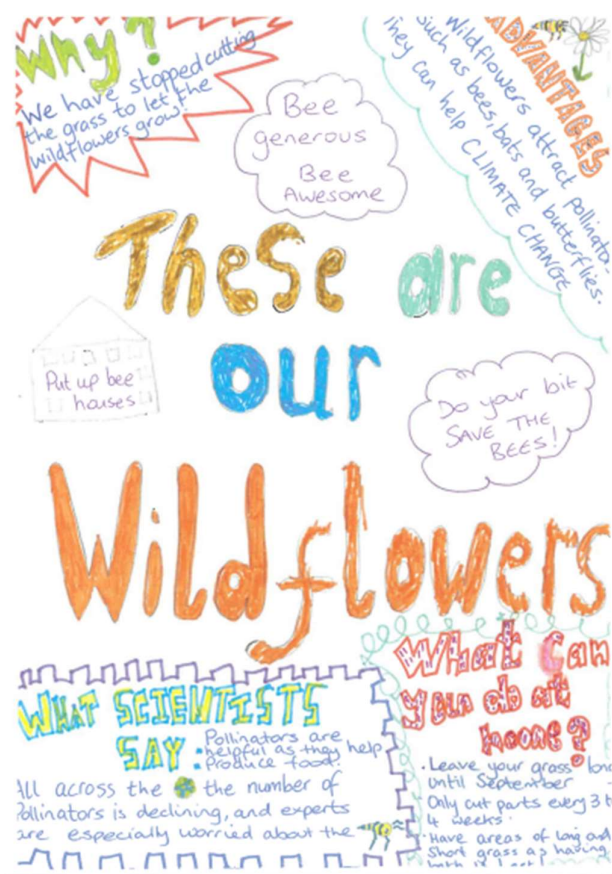 Why?
We have stopped cutting
the grass to let the
wildflowers grow!
Bee
generous
Bee
Awesome
ADVANTAGES
Wildflowers attract pollinato
such as bees, bats and butterflies.
They can help CLIMATE CHANGE
These are
our
Wildflowers
Put up bee
houses
Do your bit
SAVE THE
BEES!
WHAT SCIENTISTS
SAY:
Pollinators are
helpful as they help
produce food!
All across the the number of
Pollinators is declining, and experts
are especially worried about the
What can
you do at
home?
• Leave your grass long
until September
Only cut parts every 3 t
4 weeks
• Have areas of long and
short grass as having
both is best